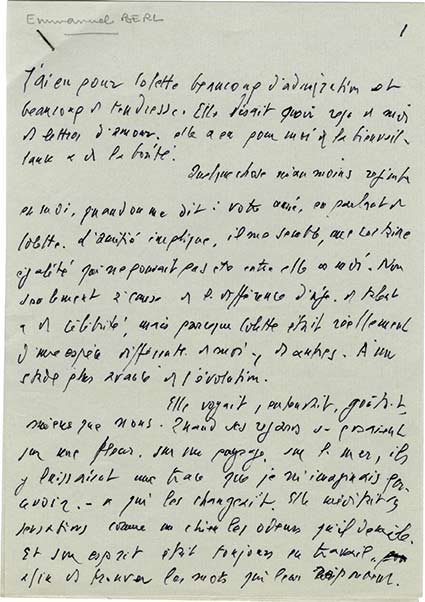 Emmanuel BERL
1
J'ai eu pour Colette beaucoup d'admiration et
beaucoup de tendresse. Elle disait avoir reçu de moi
des lettres d'amour. elle a eu pour moi de la bienveil-
lance et de la bonté.
Quelque chose néanmoins
en moi, quand on me dit : votre amie, en parlant de
Colette. L'amitié implique, il me semble, une certaine
égalité qui ne pouvait pas être entre elle et moi. Non
seulement à cause de la différence d'âge, de talent
et de célébrité, mais parce que Colette était réellement
d'une espèce différente de moi, et d'autres. A un
stade plus avancé de l'évolution.
Elle voyait, entendait, goûtait,
mieux que nous. Quand ses regards se posaient
sur une fleur, sur un paysage, sur la mer, ils
y laissaient une trace que je m'imaginais per-
cevoir. - et qui les changeait. Elle
sensations comme un chien les odeurs qu'il
Et son esprit était toujours en travail,
afin de trouver les mots qui leur